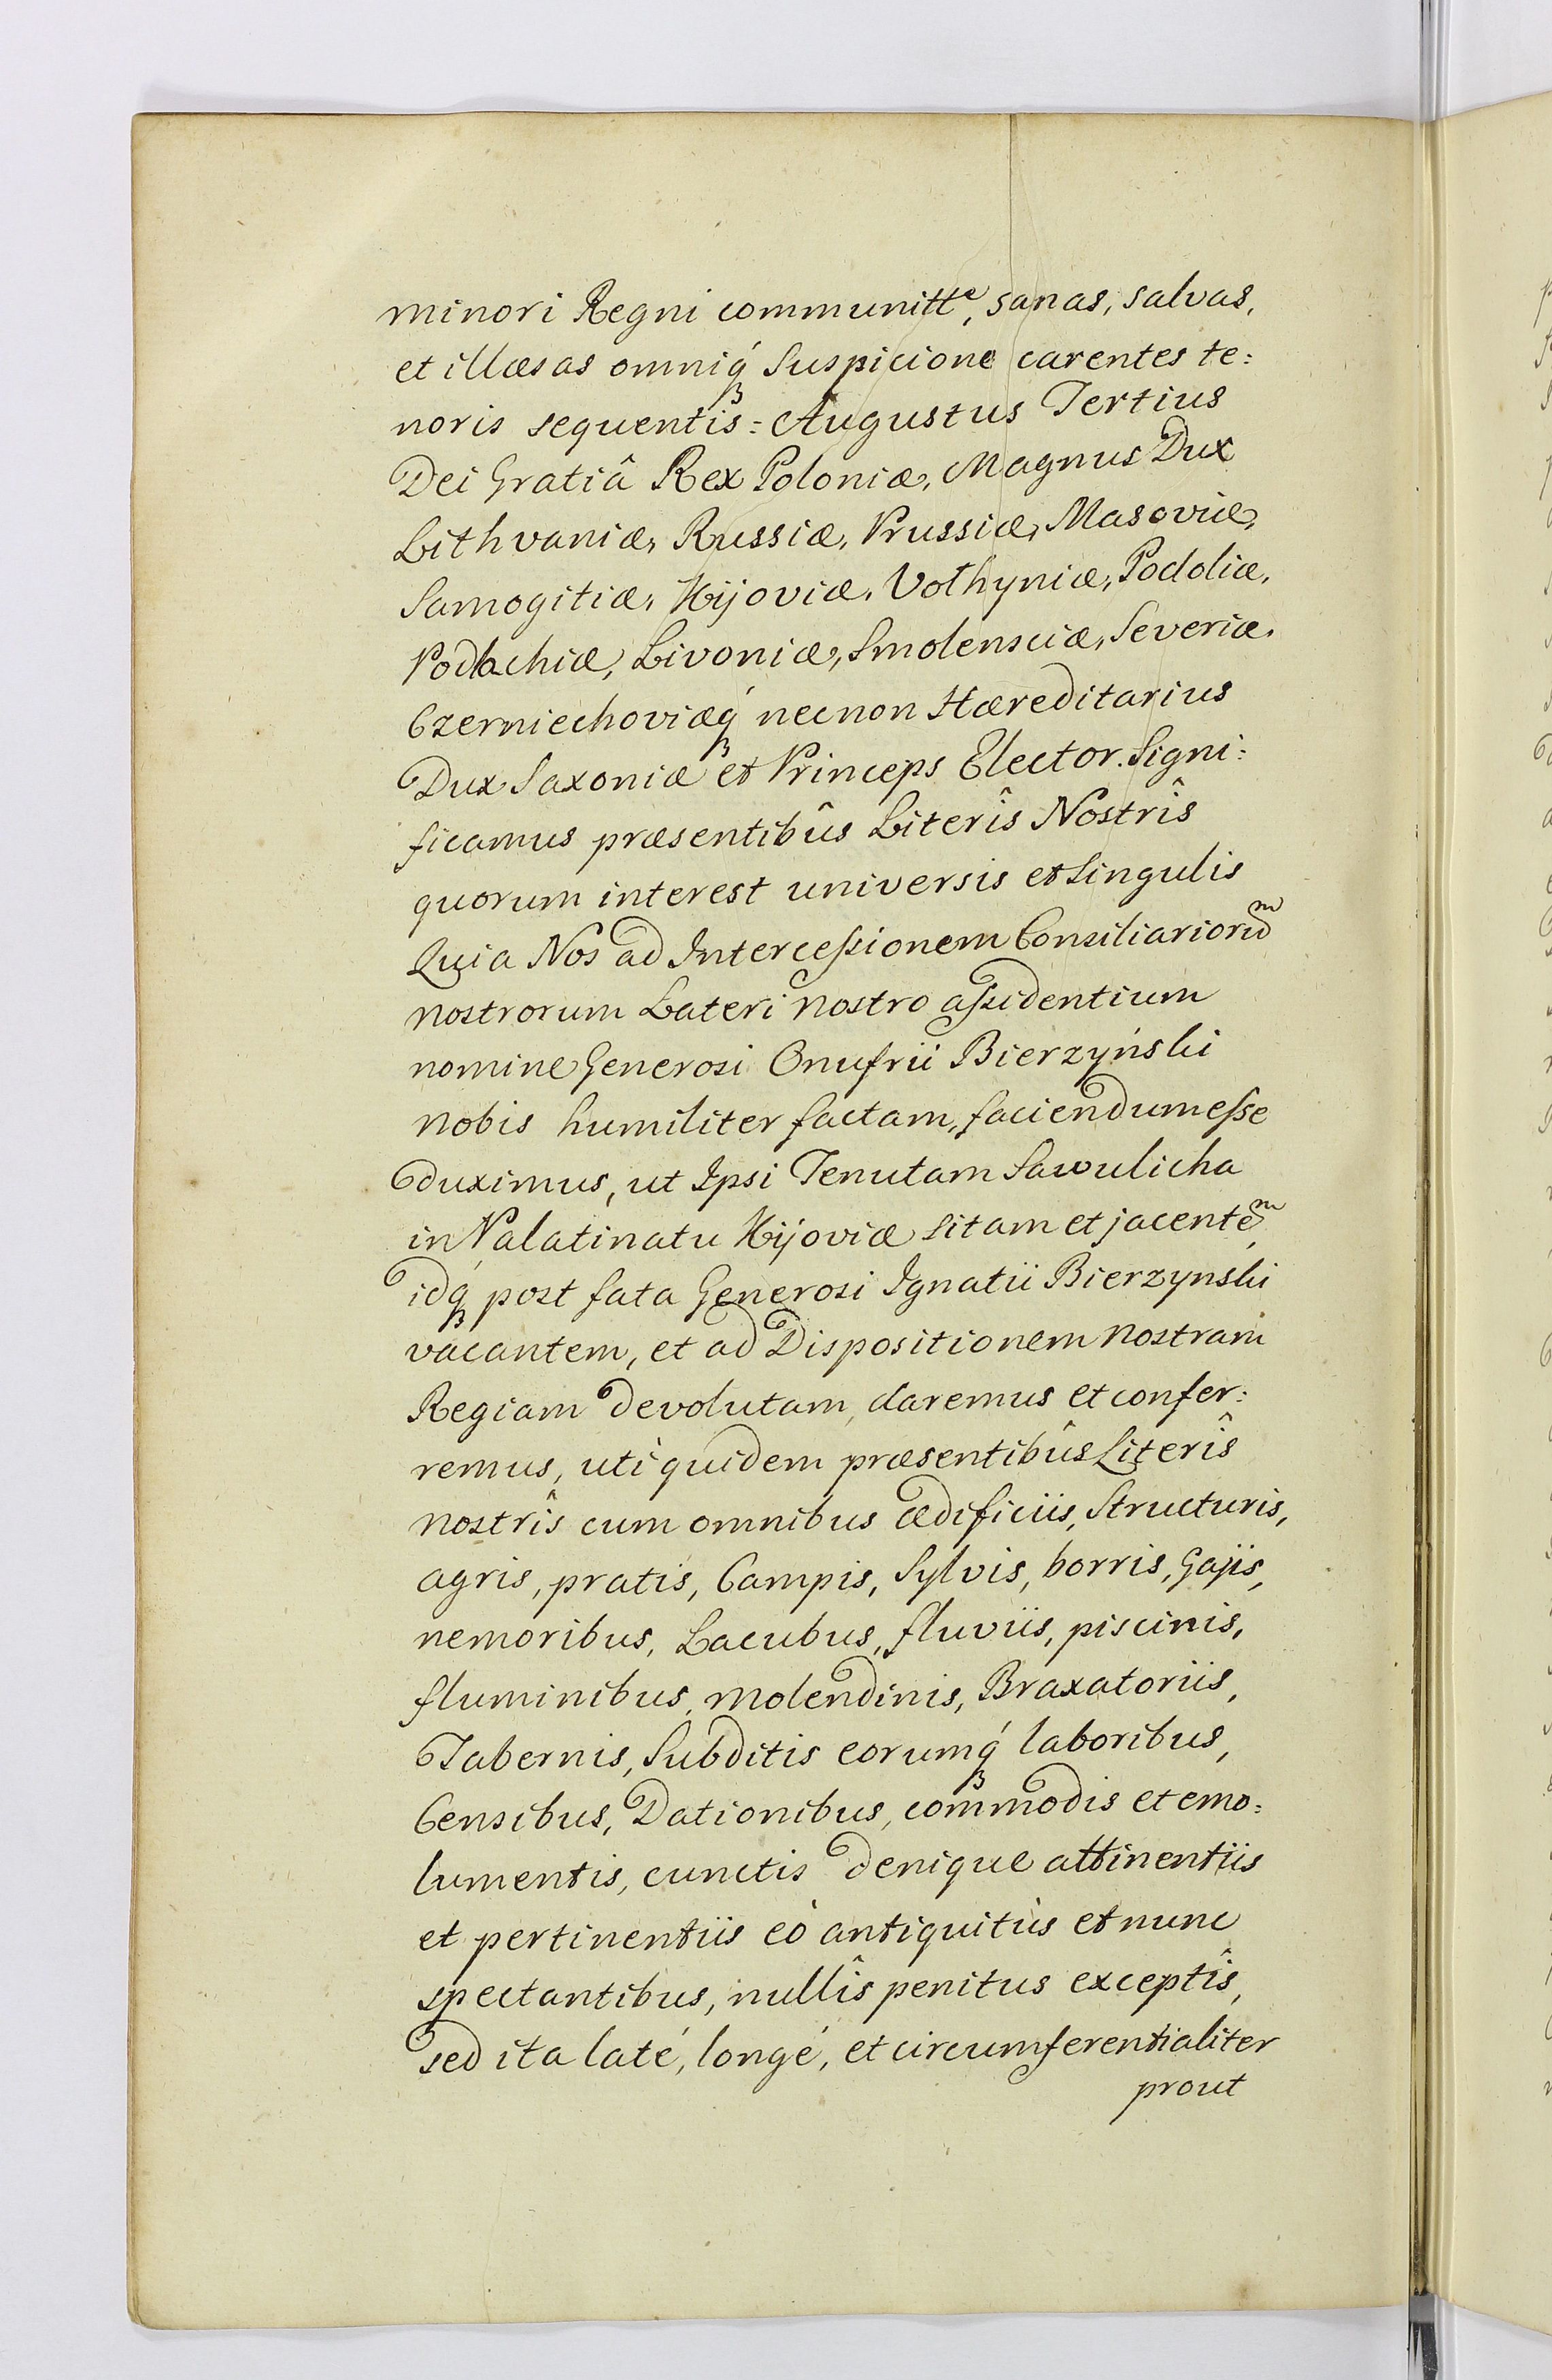 minori Regni communitte, sanas, salvas,
et illæsas omniq́ꝫ Suspicione carentes te=
noris sequentis = Augustus Tertius
Dei Gratiâ Rex Poloniæ, Magnus Dux
Lithvaniæ, Russiæ, Prussiæ, Masoviæ,
Samogitiæ, Kijoviæ, Volhyniæ, Podoliæ,
Podlachiæ, Livoniæ, Smolensciæ, Severiæ,
Czerniechoviæq́ꝫ necnon Hæreditarius
Dux Saxoniæ et Princeps Elector. Signi=
ficamus præsentibûs Literîs Nostrîs
quorum interest universis et Singulis
Quia Nos ad Interceſsionem Consiliariorum
nostrorum Lateri nostro aſsidentium
nomine Generosi Onufrii Bierzyński
nobis humiliter factam, faciendum eſse
duximus, ut Ipsi Tenutam Sawulicha
in Palatinatu Kijoviæ sitam et jacentem,
idq́ꝫ post fata Generosi Ignatii Bierzynski
vacantem, et ad Dispositionem nostram
Regiam devolutam, daremus et confer=
remus, uti quidem præsentibûs Literîs
nostrîs cum omnibus ædificiis, Structuris,
agris, pratis, Campis, Sylvis, borris, Gajis,
nemoribus, Lacubus, fluviis, piscinis,
fluminibus, molendinis, Braxatoriis,
Tabernis, Subditis eorumq́ꝫ laboribus,
Censibus, Dationibus, commodis et emo=
lumentis, cunctis denique attinentiis
et pertinentiis eò antiquitùs et nunc
spectantibus, nullîs penitus exceptîs,
sed ita laté, longé, et circumferentialiter
prout